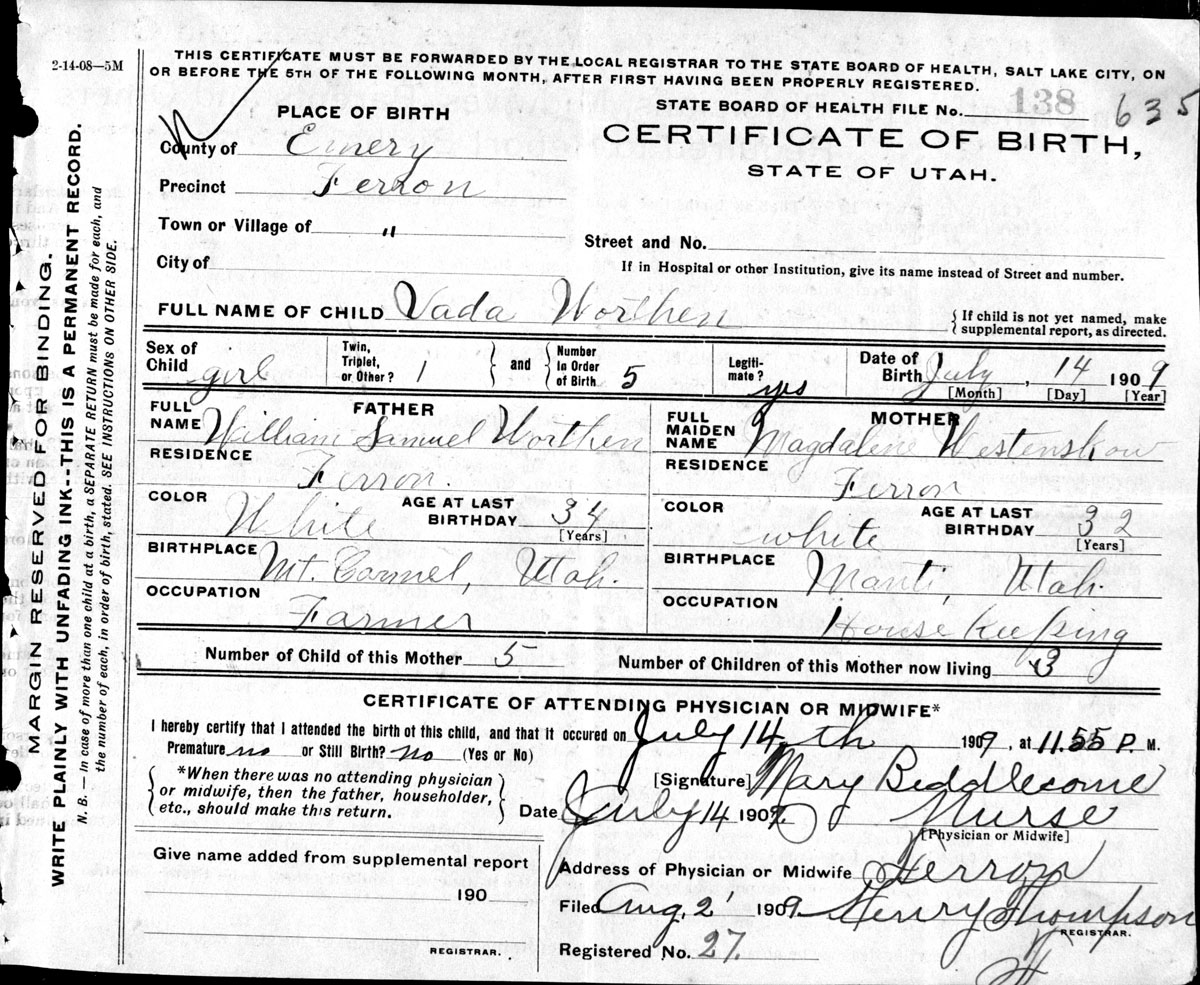 2-14-08—5M
THIS CERTIFICATE MUST BE FORWARDED BY THE LOCAL REGISTRAR TO THE STATE BOARD OF HEALTH, SALT LAKE CITY, ON
OR BEFORE THE 5TH OF THE FOLLOWING MONTH, AFTER FIRST HAVING BEEN PROPERLY REGISTERED.
STATE BOARD OF HEALTH FILE No. 138 635
PLACE OF BIRTH
CERTIFICATE OF BIRTH,
STATE OF UTAH.
County of Emery
Precinct Ferron
Town or Village of "
Street and No.
City of
If in Hospital or other Institution, give its name instead of Street and number.
FULL NAME OF CHILD Vada Worthen
{ If child is not yet named, make
supplemental report, as directed.
Sex of Child girl
Twin, Triplet, or Other? 1 } and { Number in Order of Birth 5
Legiti- mate? yes
Date of Birth July, 14 1909
[Month] [Day] [Year]
FATHER
FULL NAME William Samuel Worthen
RESIDENCE Ferron.
COLOR White
AGE AT LAST BIRTHDAY 34
[Years]
BIRTHPLACE Mt. Carmel, Utah.
OCCUPATION Farmer
MOTHER
FULL MAIDEN NAME Magdalene Westenskow
RESIDENCE Ferron
COLOR white
AGE AT LAST BIRTHDAY 32
[Years]
BIRTHPLACE Manti, Utah.
OCCUPATION House Keeping
Number of Child of this Mother 5
Number of Children of this Mother now living 3
CERTIFICATE OF ATTENDING PHYSICIAN OR MIDWIFE*
I hereby certify that I attended the birth of this child, and that it occured on July 14 th 1909, at 11.55 P. M.
Premature no or Still Birth? no (Yes or No)
{ *When there was no attending physician
or midwife, then the father, householder,
etc., should make this return. }
[Signature] Mary Biddlecome
Date July 14 1909. Nurse
[Physician or Midwife]
Give name added from supplemental report
190
REGISTRAR.
Address of Physician or Midwife Ferron
Filed Aug. 2 1909. Henry Thompson
REGISTRAR.
Registered No. 27.
MARGIN RESERVED FOR BINDING.
WRITE PLAINLY WITH UNFADING INK--THIS IS A PERMANENT RECORD.
N. B.—In case of more than one child at a birth, a SEPARATE RETURN must be made for each, and
the number of each, in order of birth, stated. SEE INSTRUCTIONS ON OTHER SIDE.